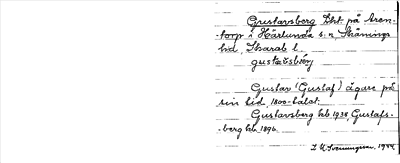 Gustavsberg Lht på Aren-
torp i Härlunda s:n Skånings
hd, Skarab l.
gustavsbärj
Gustav (Gustaf) ägare på
sin tid, 1800-talet.
Gustavsberg hb 1938, Gustafs-
berg hb 1896.
1944